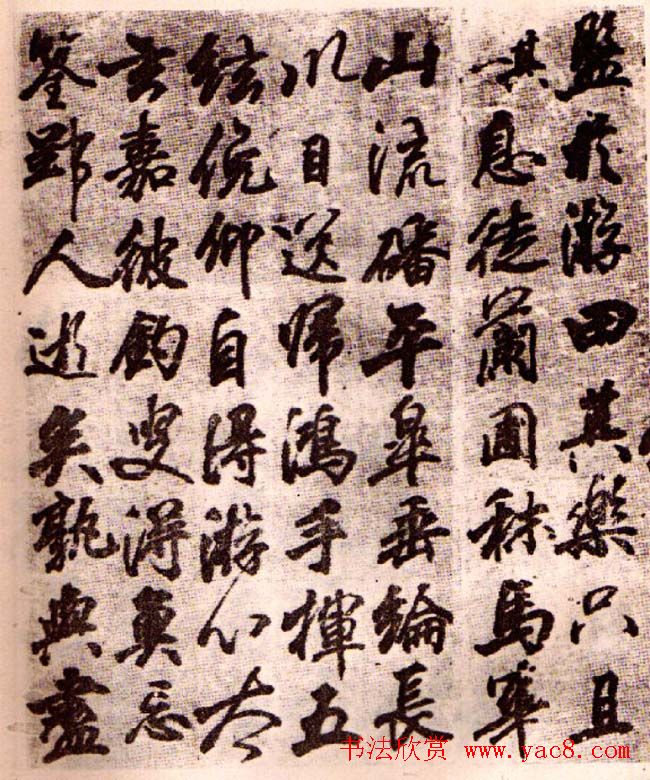 盤於游田其樂只且
其息徒蘭圃秣馬華
山流磻平皋垂綸長
川目送歸鴻手揮五
絃俛仰自得游心太
玄嘉彼釣叟得魚忘
筌郢人逝矣孰與盡
书法欣赏 www.yac8.com